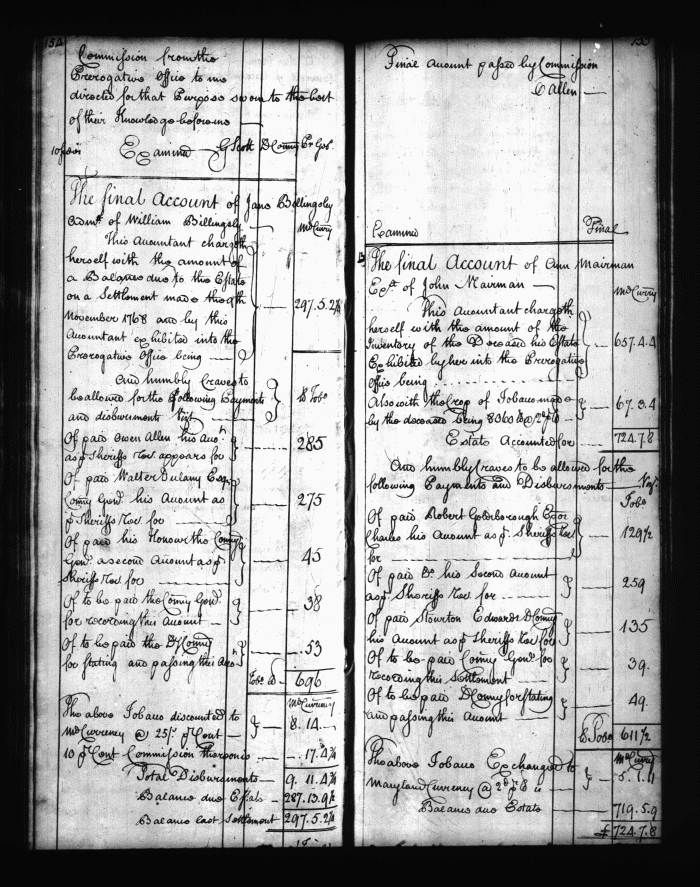 154
Commission from the
Prerogative Office to me
directed for that Purpose sworn to the best
of their Knowledge before me
Examined GScott DComry Pr Geo:
The final Account of Jane Billingsly
Admx. of William Billingsly
MdCurry
This Accountant chargeth
herself with the amount of
a Ballance due to the Estate
on a Settlement made the 9th
November 1768 and by this
Accountant exhibited into the
Prerogative Office being
297.5.2¾
And humbly craves to
be allowed for the following Payments
and disbursments Vizt.
lb Tobo
Of paid Owen Allen his Acco:
as pr Sheriffs Rect. appears for
285
Of paid Walter Dulany Esqr.
Comry Genl. his Account as
pr Sheriffs Rect for
275
Of paid his Honour the Comry
Genl. a second Account as pr
Sheriffs Rect for
45
Of to be paid the Comry Genl.
for recording this Account
38
Of to be paid the DComry
for stating and passing this Acco
53
Tobo lb 696
MdCurrency
The above Tobaco discounted to
MdCurrency @ 25/. pr Cent
8.14
10 pr Cent Commission thereon is
17.4¾
Total Disbursments 9.11.4¾
Ballance due Estate 287.13.9½
Ballance last Settlement 297.5.2¼
Final Account passed by Commission
CAllen
Examined Final
The final Account of Ann Mairman
Exx. of John Marman
MdCurry
This Accountant chargeth
herself with the amount of the
Inventory of the Deceased his Estate
Exhibited by her into the Prerogative
Office being
657.4.4
Also with the Crop of Tobaco made
by the deceased being 8060 lb @ 2d pr lb
67.3.4
Estate Accounted for 724.7.8
And humbly craves to be allowed for the
following Payments and Disbursments Vizt
Tobo
Of paid Robert Goldsborough
Charles his Account as pr Sheriffs Rect
for
129½
Of paid Do. his Second Account
as pr Sheriffs Rect for
259
Of paid Stourton Edwards DComry
his Account as pr Sheriffs Rect for
135
Of to be paid Comry Genl. for
recording this settlement
39.
Of to be paid DComry for stating
and passing this Account
49.
lb Tobo 611½
MdCurry
The above Tobaco Exchanged to
Maryland Currency @ 2d pr lb is
5.1.11
Ballance due Estate 719.5.9
£ 724.7.8